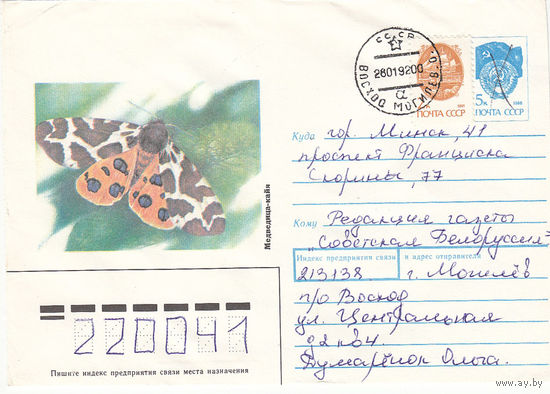 СССР
ВОСХОД МОГИЛЕВ. О.
28019200
α
1988
ПОЧТА СССР
5к 1988
ПОЧТА СССР
Медведица-кайя
Куда гор. Минск, 41
проспект Франциска
Скорины, 77
Кому Редакция газеты
"Советская Белоруссия"
Индекс предприятия связи и адрес отправителя
213138 г. Могилёв
п/о Восход
ул. Центральная
д2 кв4.
Думартнок Ольга.
220041
Пишите индекс предприятия связи места назначения
www.ay.by